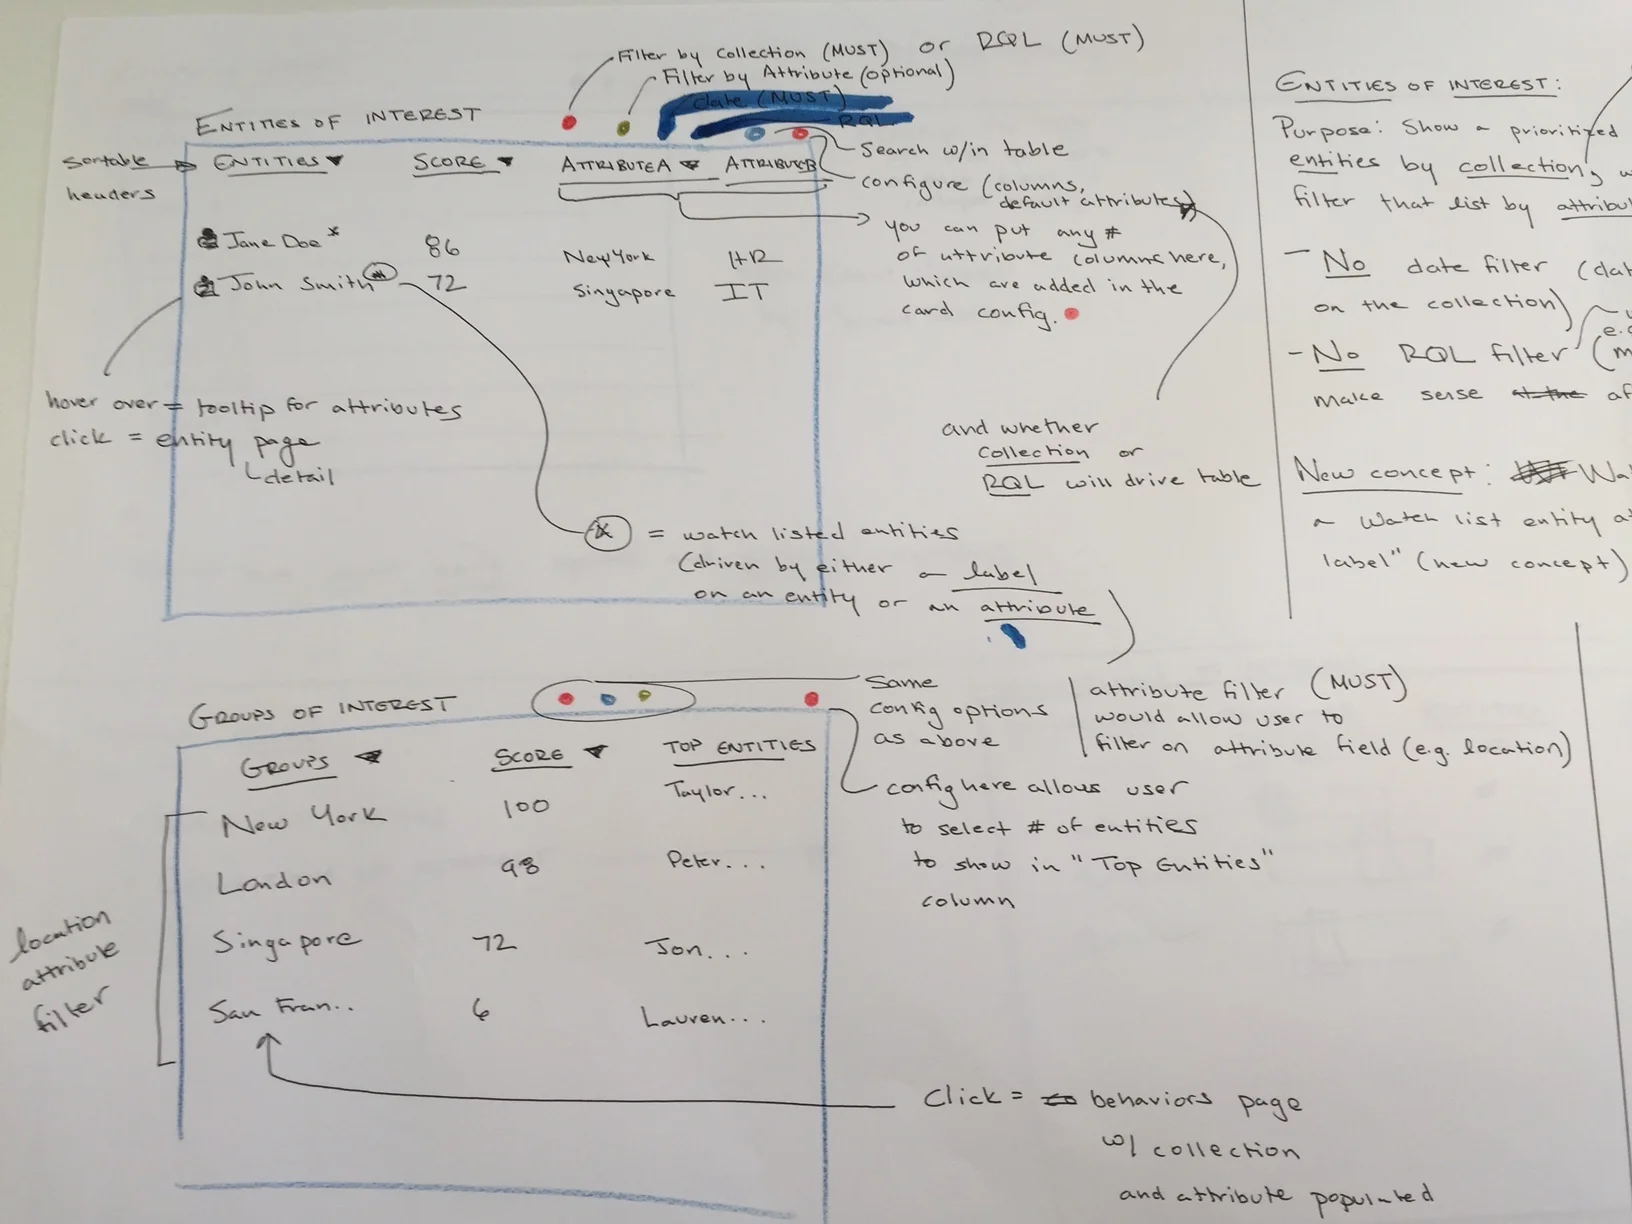 Filter by Collection (MUST) or RQL (MUST)
Filter by Attribute (optional)
date (MUST)
RQL
ENTITIES OF INTEREST
Search w/in table
configure (columns,
default attributes)
sortable
headers
ENTITIES
SCORE
ATTRIBUTE A
ATTRIBUTE B
you can put any #
of attribute columns here,
which are added in the
card config.
Jane Doe *
86
New York
HR
John Smith
72
Singapore
IT
hover over = tooltip for attributes
click = entity page
detail
and whether
collection or
RQL will drive table
* = watch listed entities
(driven by either a label
on an entity or an attribute
GROUPS OF INTEREST
Same
config options
as above
attribute filter (MUST)
would allow user to
filter on attribute field (e.g. location)
GROUPS
SCORE
TOP ENTITIES
config here allows user
to select # of entities
to show in "Top Entities"
column
New York
100
Taylor...
London
98
Peter...
Singapore
72
Jon...
San Fran..
6
Lauren...
location
attribute
filter
Click = behaviors page
w/ collection
and attribute populated
ENTITIES OF INTEREST:
Purpose: Show a prioritized
entities by collection,
filter that list by
- No date filter
on the collection)
- No RQL filter
make sense
New concept:
a Watch list entity
label" (new concept)